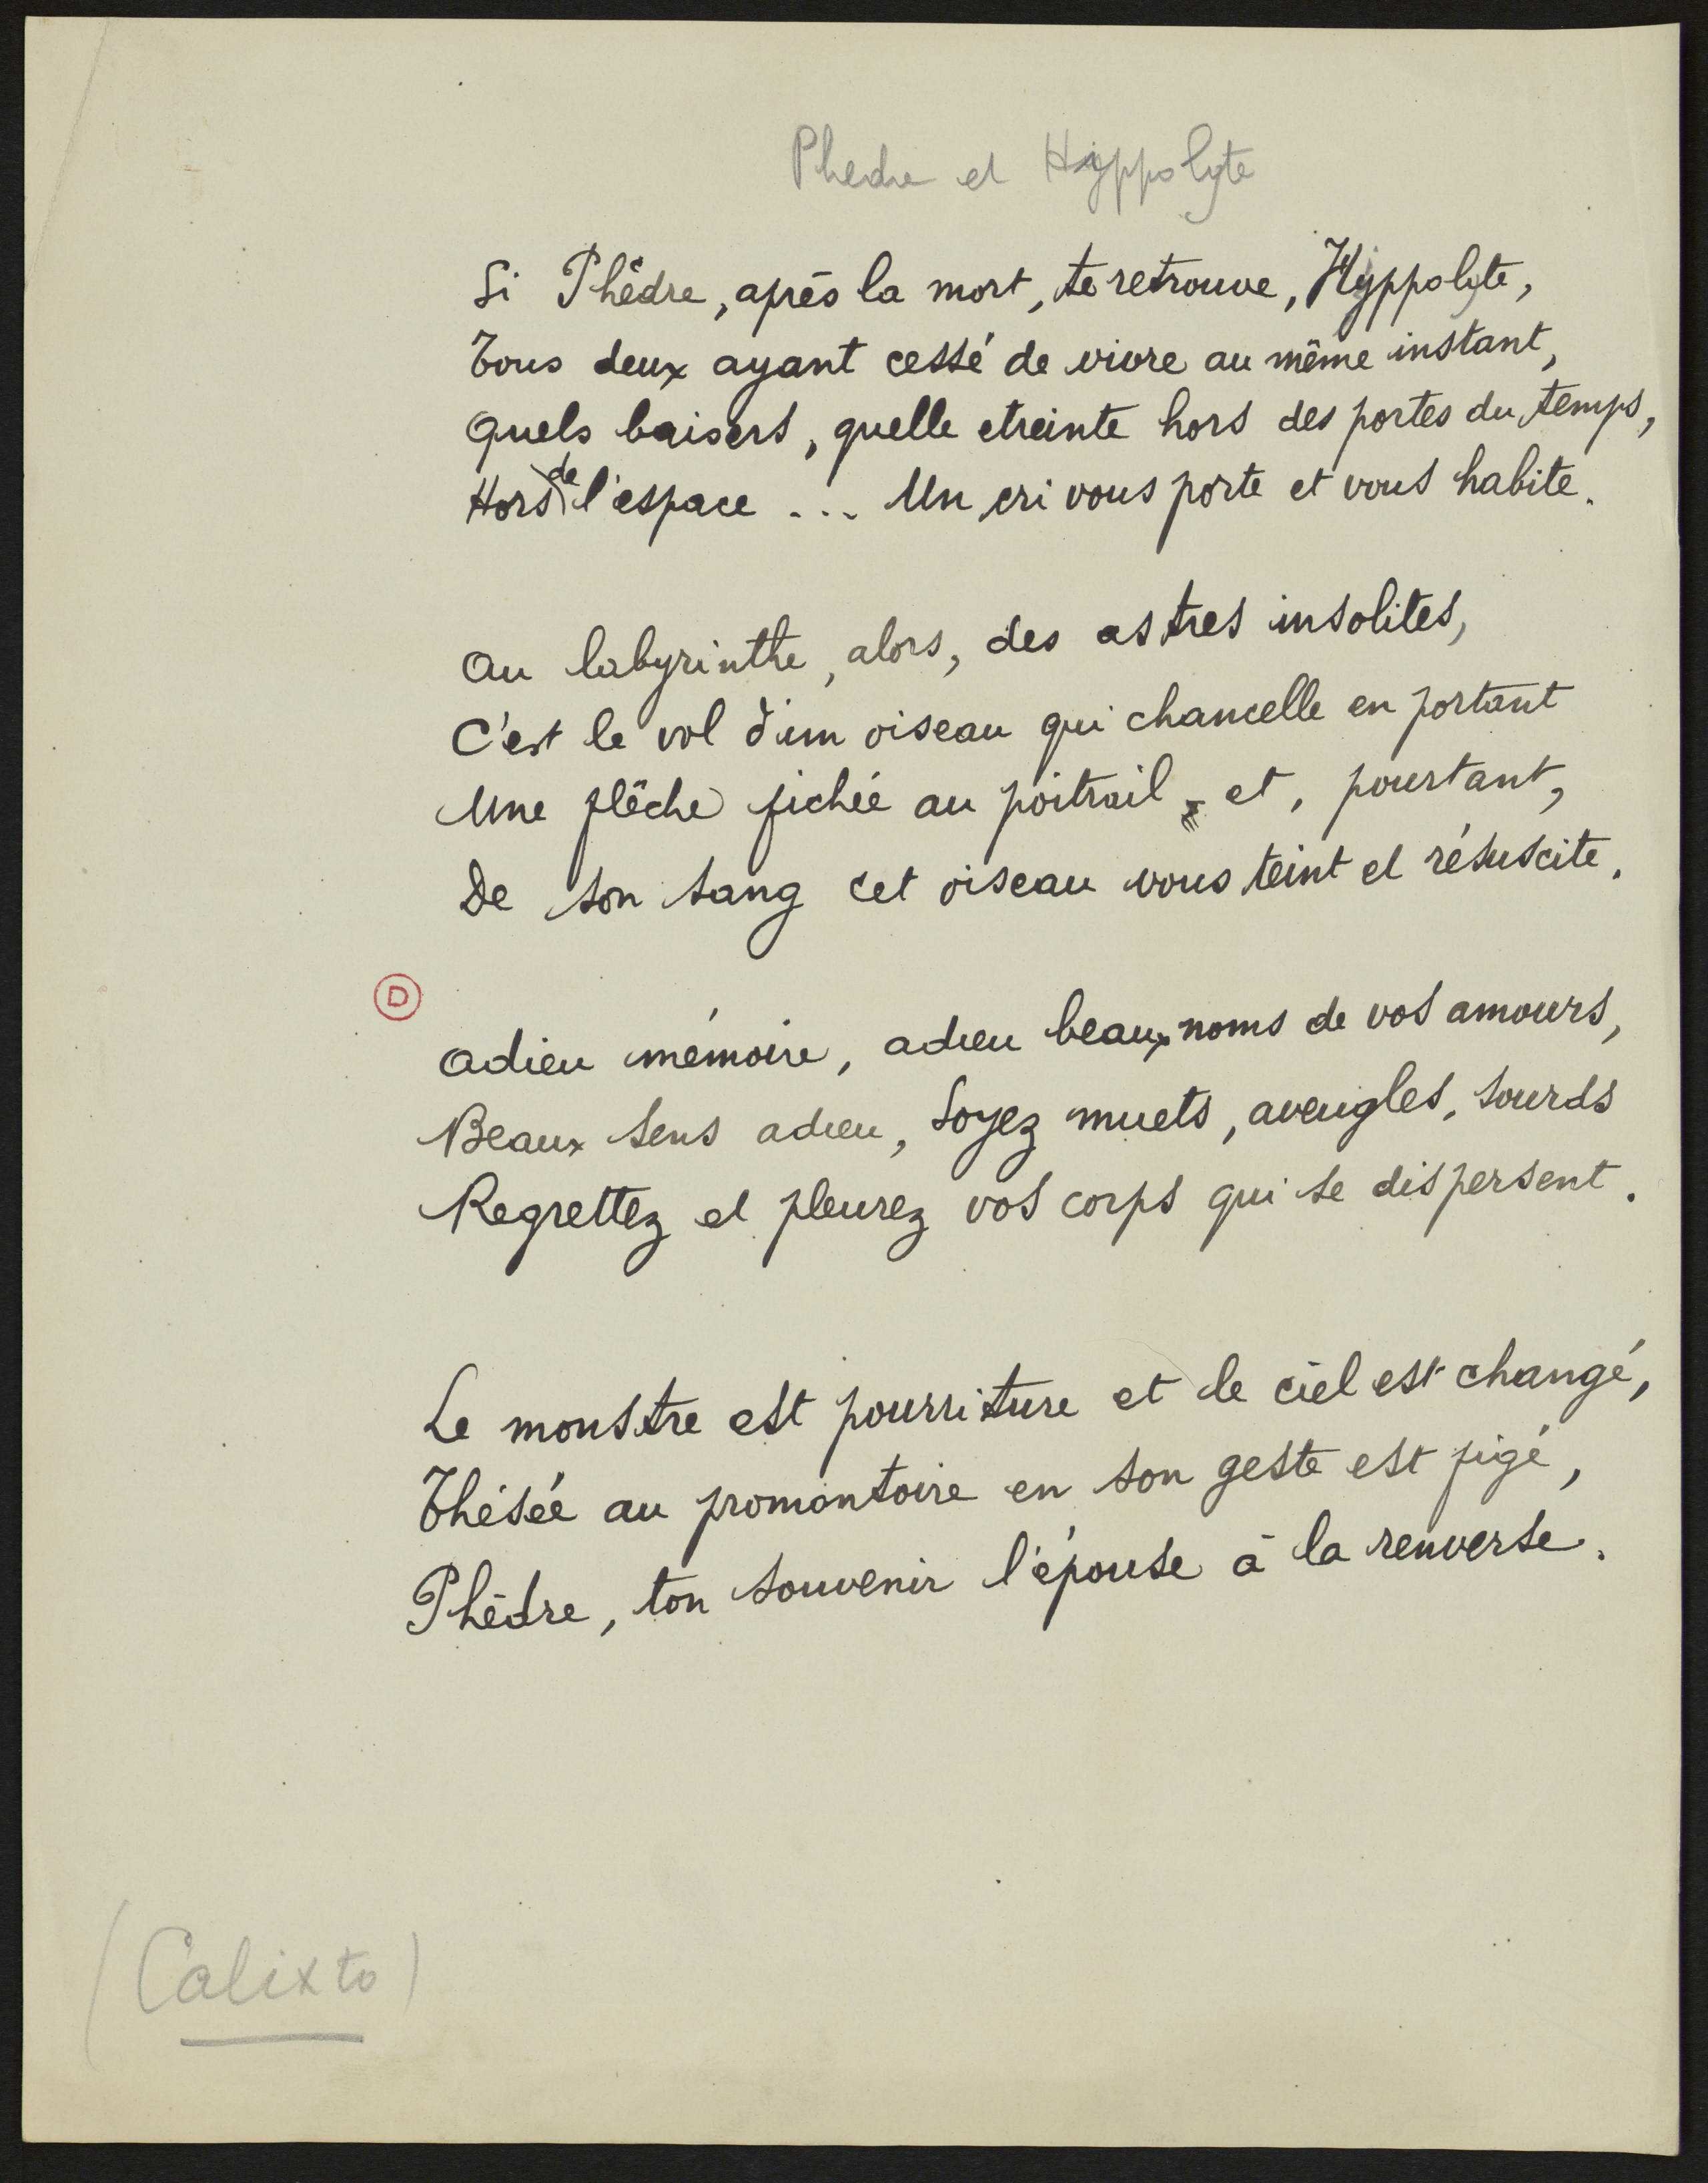 Phedre et Hyppolyte
Si Phêdre, après la mort, te retrouve, Hyppolyte,
Tous deux ayant cessé de vivre au même instant,
Quels baisers, quelle etreinte hors des portes du temps,
Hors de l'espace ... Un cri vous porte et vous habite.
Au labyrinthe, alors, des astres insolites,
C'est le vol d'un oiseau qui chancelle en portant
Une flêche fichée au poitrail, et, pourtant,
De son sang cet oiseau vous teint et résuscite.
D
Adieu mémoire, adieu beaux noms de vos amours,
Beaux sens adieu, Soyez muets, aveugles, sourds
Regrettez et pleurez vos corps qui se dispersent.
Le monstre est pourriture et le ciel est changé,
Thésée au promontoire en son geste est figé,
Phêdre, ton souvenir l'épouse à la renverse.
(Calixto)